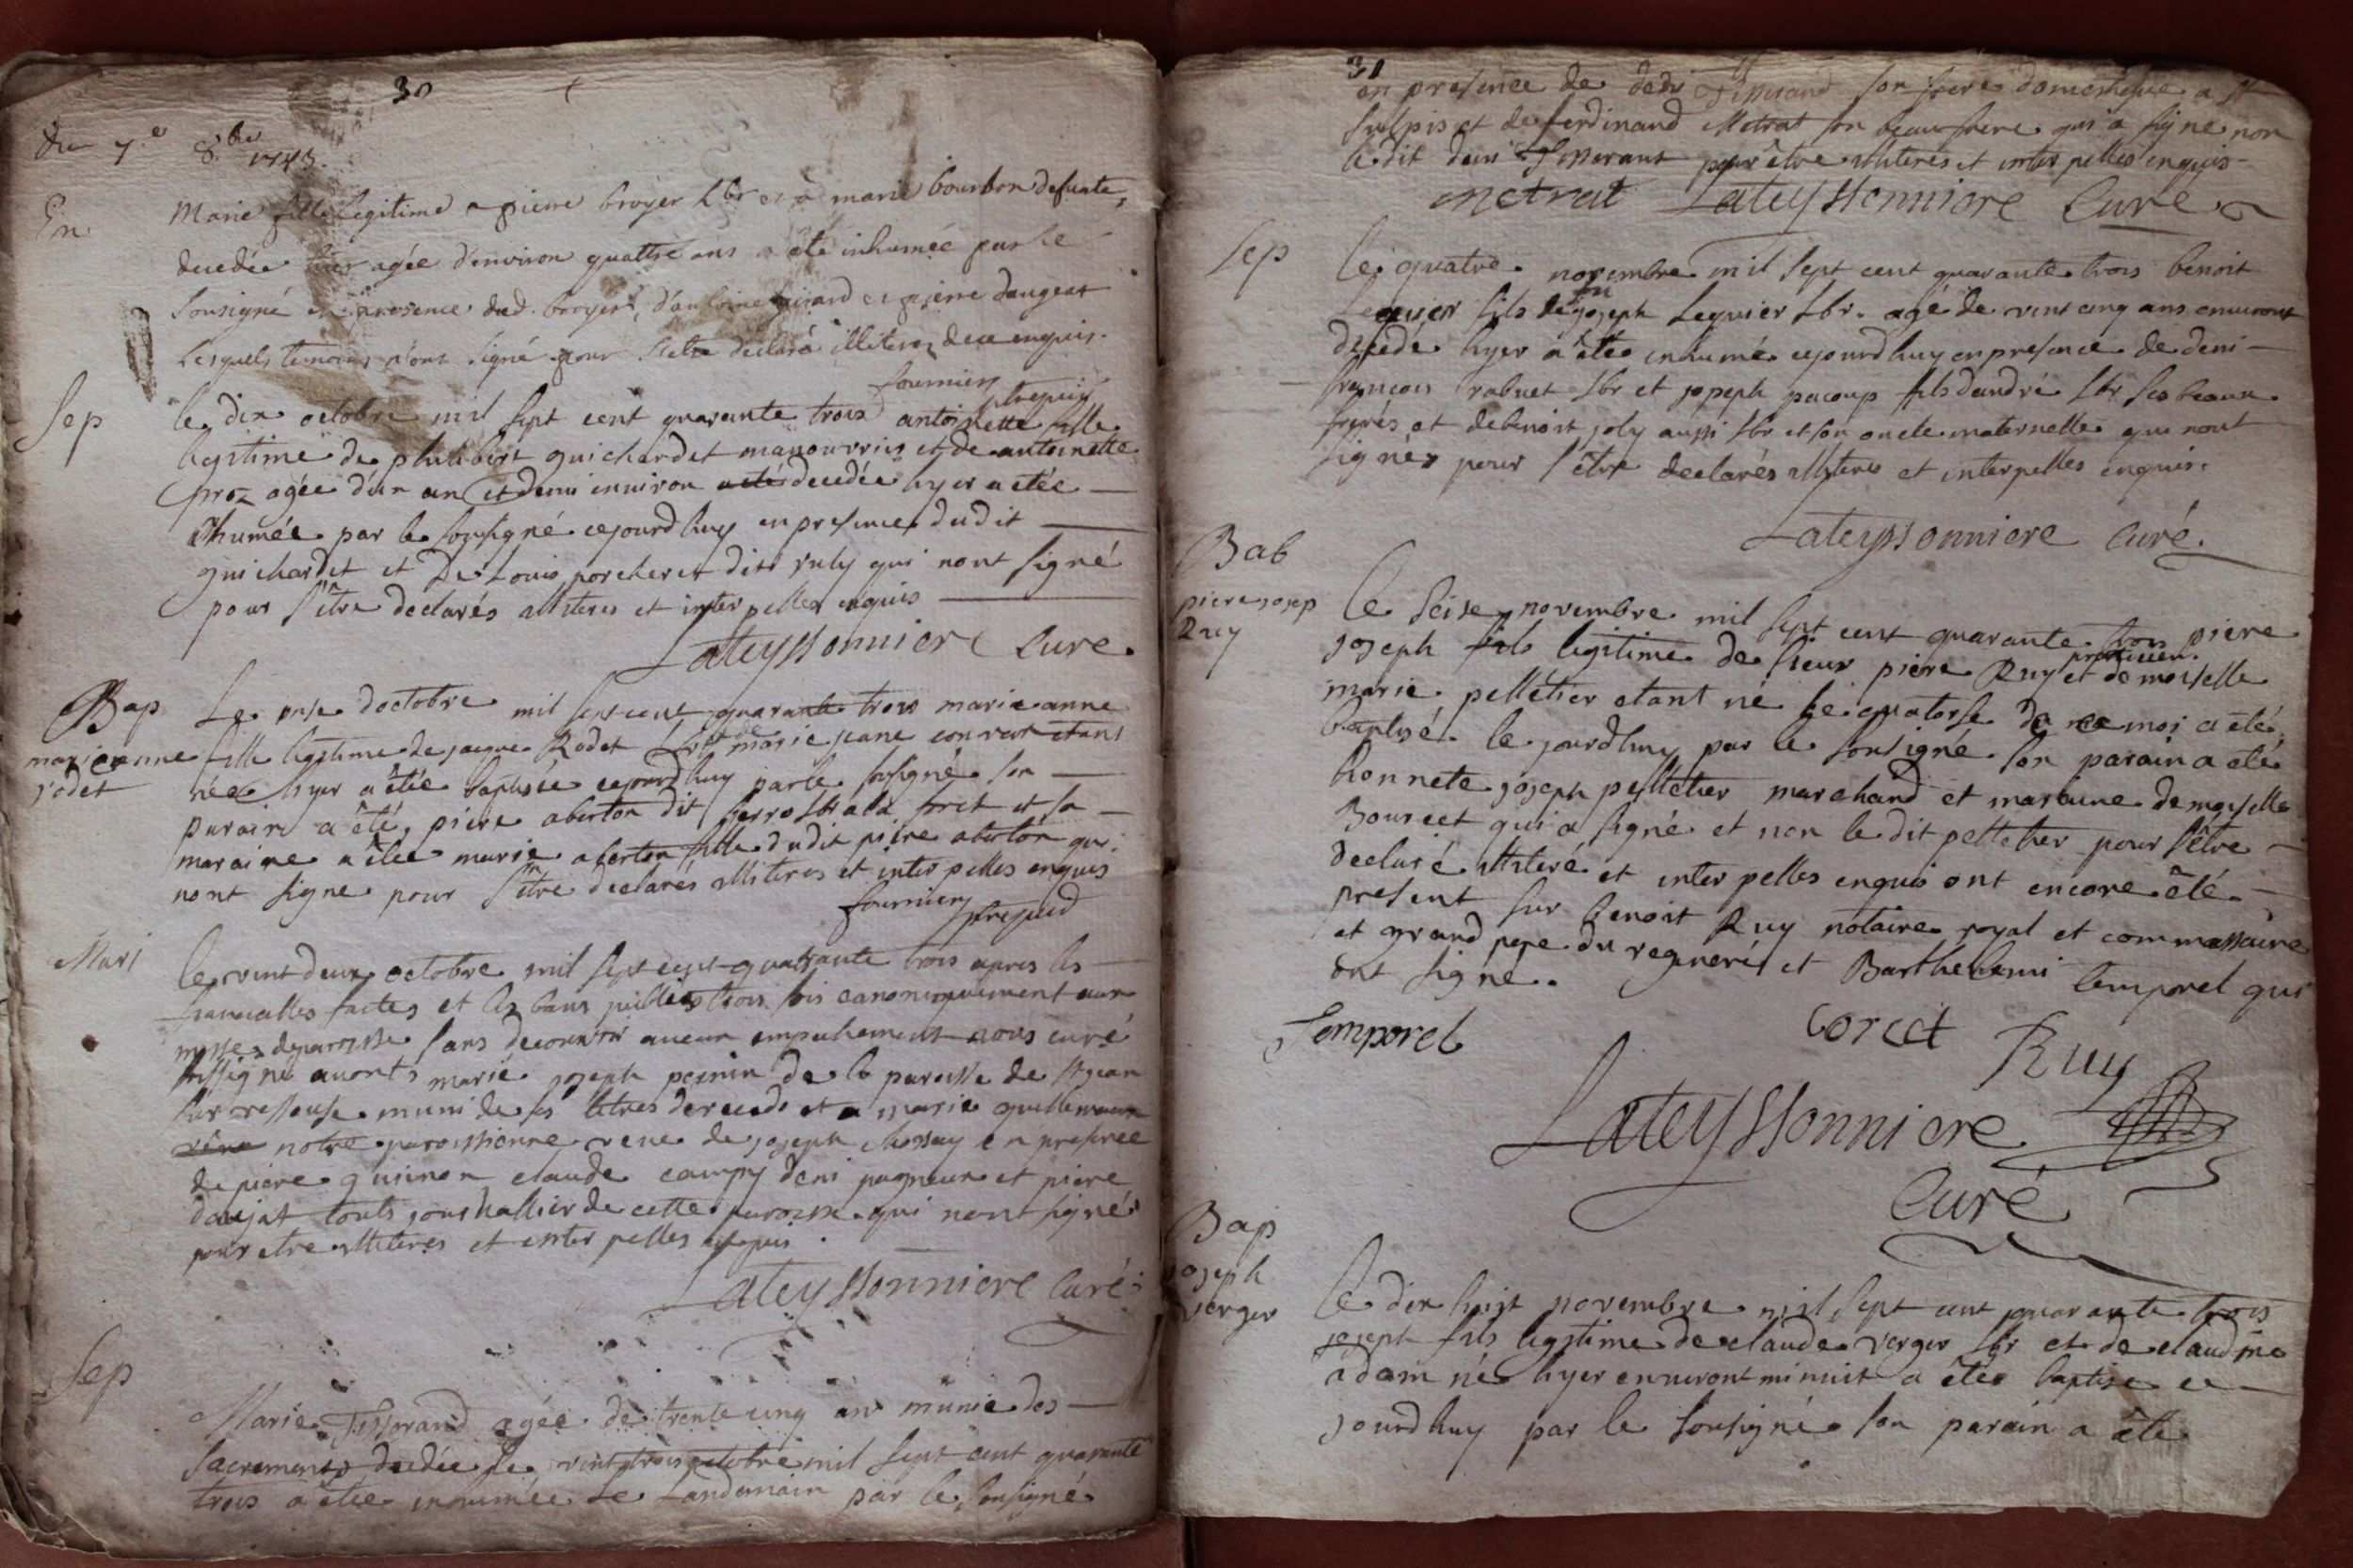 30
Du 7.e 8bre 1743.
En.
Marie fille legitime a piere broyer Lbr et a marie bourbon defunte,
decedée hier agée d'environ quattre ans a été inhumée par le
Sousigné en presence dud. broyer, d'antoine et piere daugeat
Lesquels temoins n'ont signé pour s'etre declaré illiteres de ce enquis.
fournier
Sep
le dix octobre mil sept cent quarante trois antoinette fille
legitime de philibert guichardet manouvrier et de antoinette
proz agée d'un an et demi environ a eté decedée hyer a etée
Ihumée par le sousigné cejourdhuy en presence dudit
guichardet et De Louis porcheret dits ruly qui nont signé
pour s'être declarés alliteres et interpelles enquis
Lateyssonniere Curé.
Bap
marieanne
rodet
Le onse d'octobre mil sept cent quarante trois marie anne
fille legitime de jacque Rodet Lbr et de marie jeane convert etant
née hyer a êtée baptisée cejourdhuy par le sousigné son
parain a êté, piere aberton dit sa
maraine a êtée marie aberton fille dudit piere aberton qui
nont signe pour s'être declarés alliteres et interpelles enquis
fournier
Mari
le vint deux octobre mil sept cent quatrante trois apres les
fiancalles faites et les bans publiés trois fois canoniquement aux
messes de paroisse sans decouvrir aucun empechement nous curé
soussigné avonts marié joseph pernin de la paroisse de St jean
sur ressouse muni de ses letres de recede et a marie
notre paroissienne veve de joseph en presence
de piere guimon claude deni pagneux et piere
daujat touts de cette paroisse qui nont signés
pour etre alliteres et interpelles enquis
Lateyssonniere Curé.
Sep
Marie Tisserand agée de trente cinq ans munie des
sacrements decedée le vint trois octobre mil sept cent quarante
trois a êtée inhumée le landemain par le sousigné
31
en presence de deni Tisserand son frere domestique a St
sulpis et de ferdinand Metrat son beau frere qui a signe non
le dit deni Tisserant pour être alliterés et interpelles enquis
metrat Lateyssonniere Curé
Sep
le quatre novembre mil sept cent quarante trois benoit
Lequier fils de feu joseph Lequier Lbr. agé de vint cinq ans environt
decedé hyer a êtée inhumé cejourdhuy en presence de deni
francois rabuet Lbr et joseph pacoup fils d'andré Lbr ses beaux
freres et de benoit joly aussi Lbr et son oncle maternelle qui nont
signés pour s'être declarés alliteres et interpelles enquis.
Lateyssonniere Curé.
Bab
piere josep
Ruy
le seise novembre mil sept cent quarante trois piere
joseph fils legitime de sieur piere Ruy praticien et demoiselle
marie pelletier etant né le quatorse de ce moi a êté
baptisé le jourdhuy par le sousigné son parain a eté
honnete joseph pelletier marchand et maraine demoiselle
Bourcet qui a signé et non le dit pelletier pour s'être
declaré alliteré et interpelles enquis ont encore êté
present sur benoit Ruy notaire royal et commassaire
et grand pere du regeneré et Barthelemi Temporel qui
ont signé.
Temporel
corcet
Ruy
Lateyssonniere
Curé
Bap
joseph
verger
le dix huit novembre mil sept cent quarante trois
joseph fils legitime de claude verger Lbr et de claudine
adam né hyer environt minuit a êtée baptise ce
jourdhuy par le sousigné son parain a êté